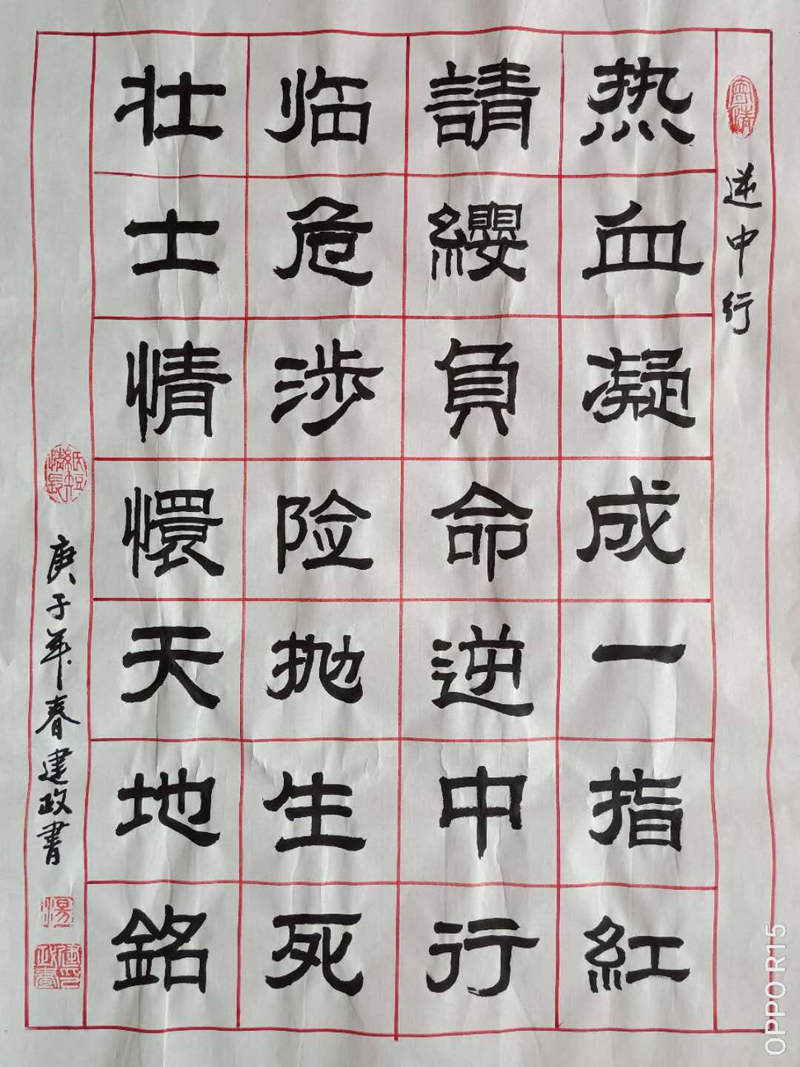 逆中行
热血凝成一指紅
請纓負命逆中行
临危涉险抛生死
壮士情懷天地銘
庚子年春建政書
OPPO R15